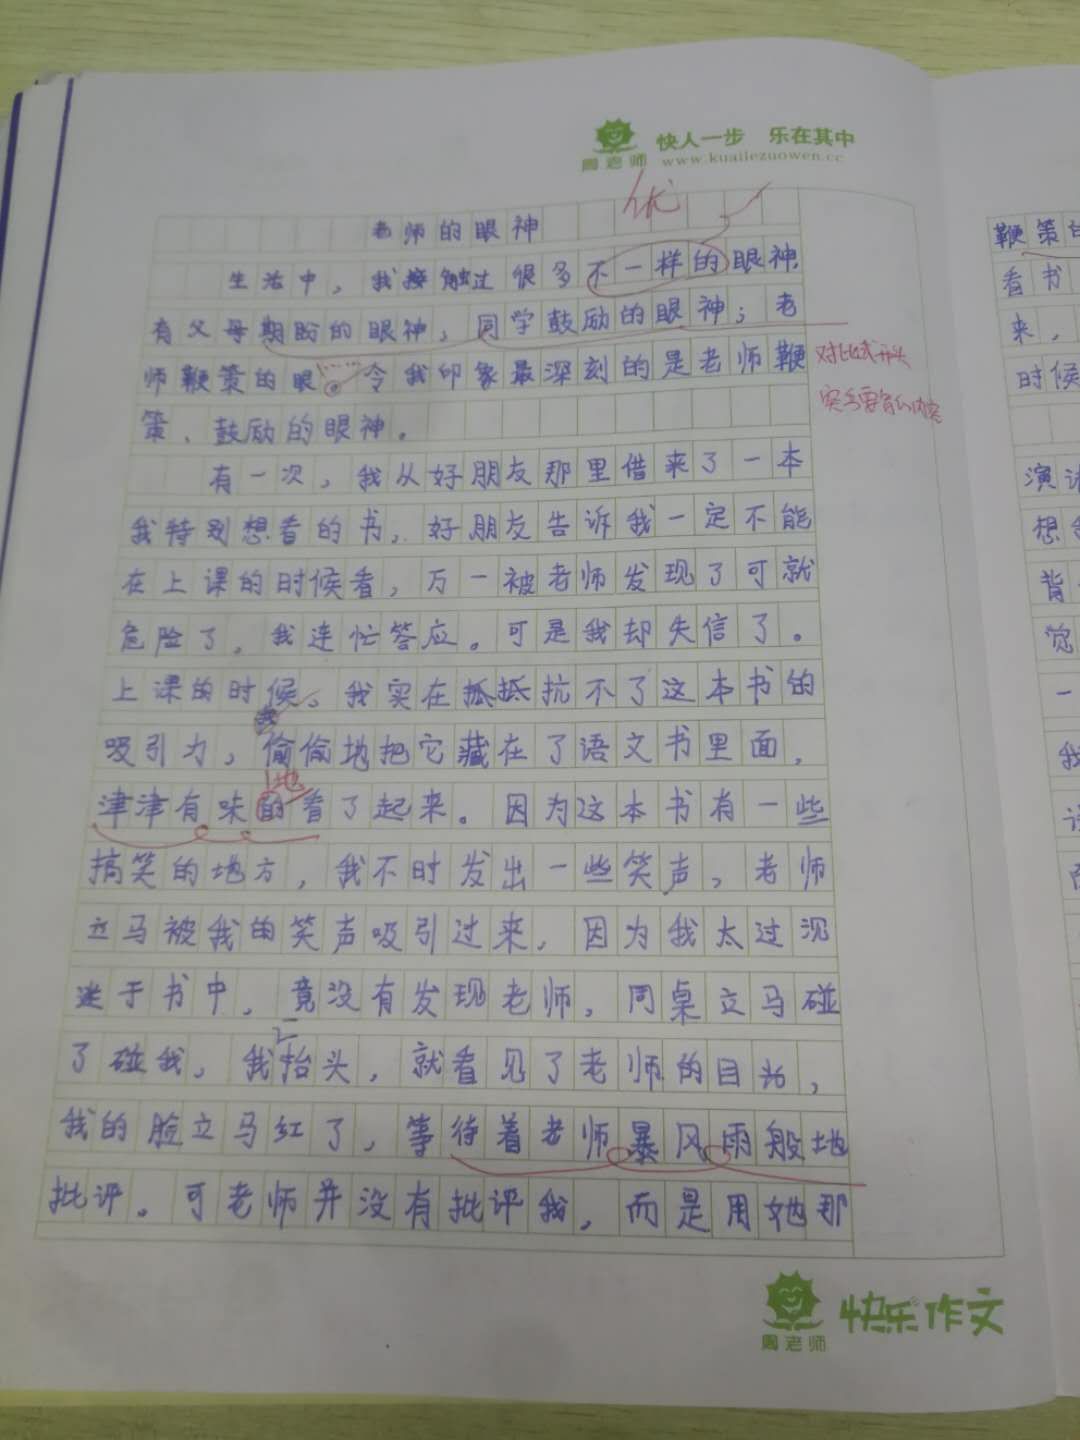 快人一步 乐在其中
周老师 www.kuailezuowen.cc
优
老师的眼神
生活中，我接触过很多不一样的眼神，
有父母期盼的眼神；同学鼓励的眼神；老
师鞭策的眼……令我印象最深刻的是老师鞭
策、鼓励的眼神。
对比式开头
突出要写的内容
有一次，我从好朋友那里借来了一本
我特别想看的书，好朋友告诉我一定不能
在上课的时候看，万一被老师发现了可就
危险了。我连忙答应。可是我却失信了。
上课的时候，我实在抵抵抗不了这本书的
我
吸引力，偷偷地把它藏在了语文书里面，
地
津津有味的看了起来。因为这本书有一些
搞笑的地方，我不时发出一些笑声，老师
立马被我的笑声吸引过来，因为我太过沉
迷于书中，竟没有发现老师，同桌立马碰
一
了碰我，我抬头，就看见了老师的目光，
我的脸立马红了，等待着老师暴风雨般地
批评。可老师并没有批评我，而是用她那
周老师 快乐作文
鞭策的
看书
来，
时候
演讲
想
背
觉
一
我